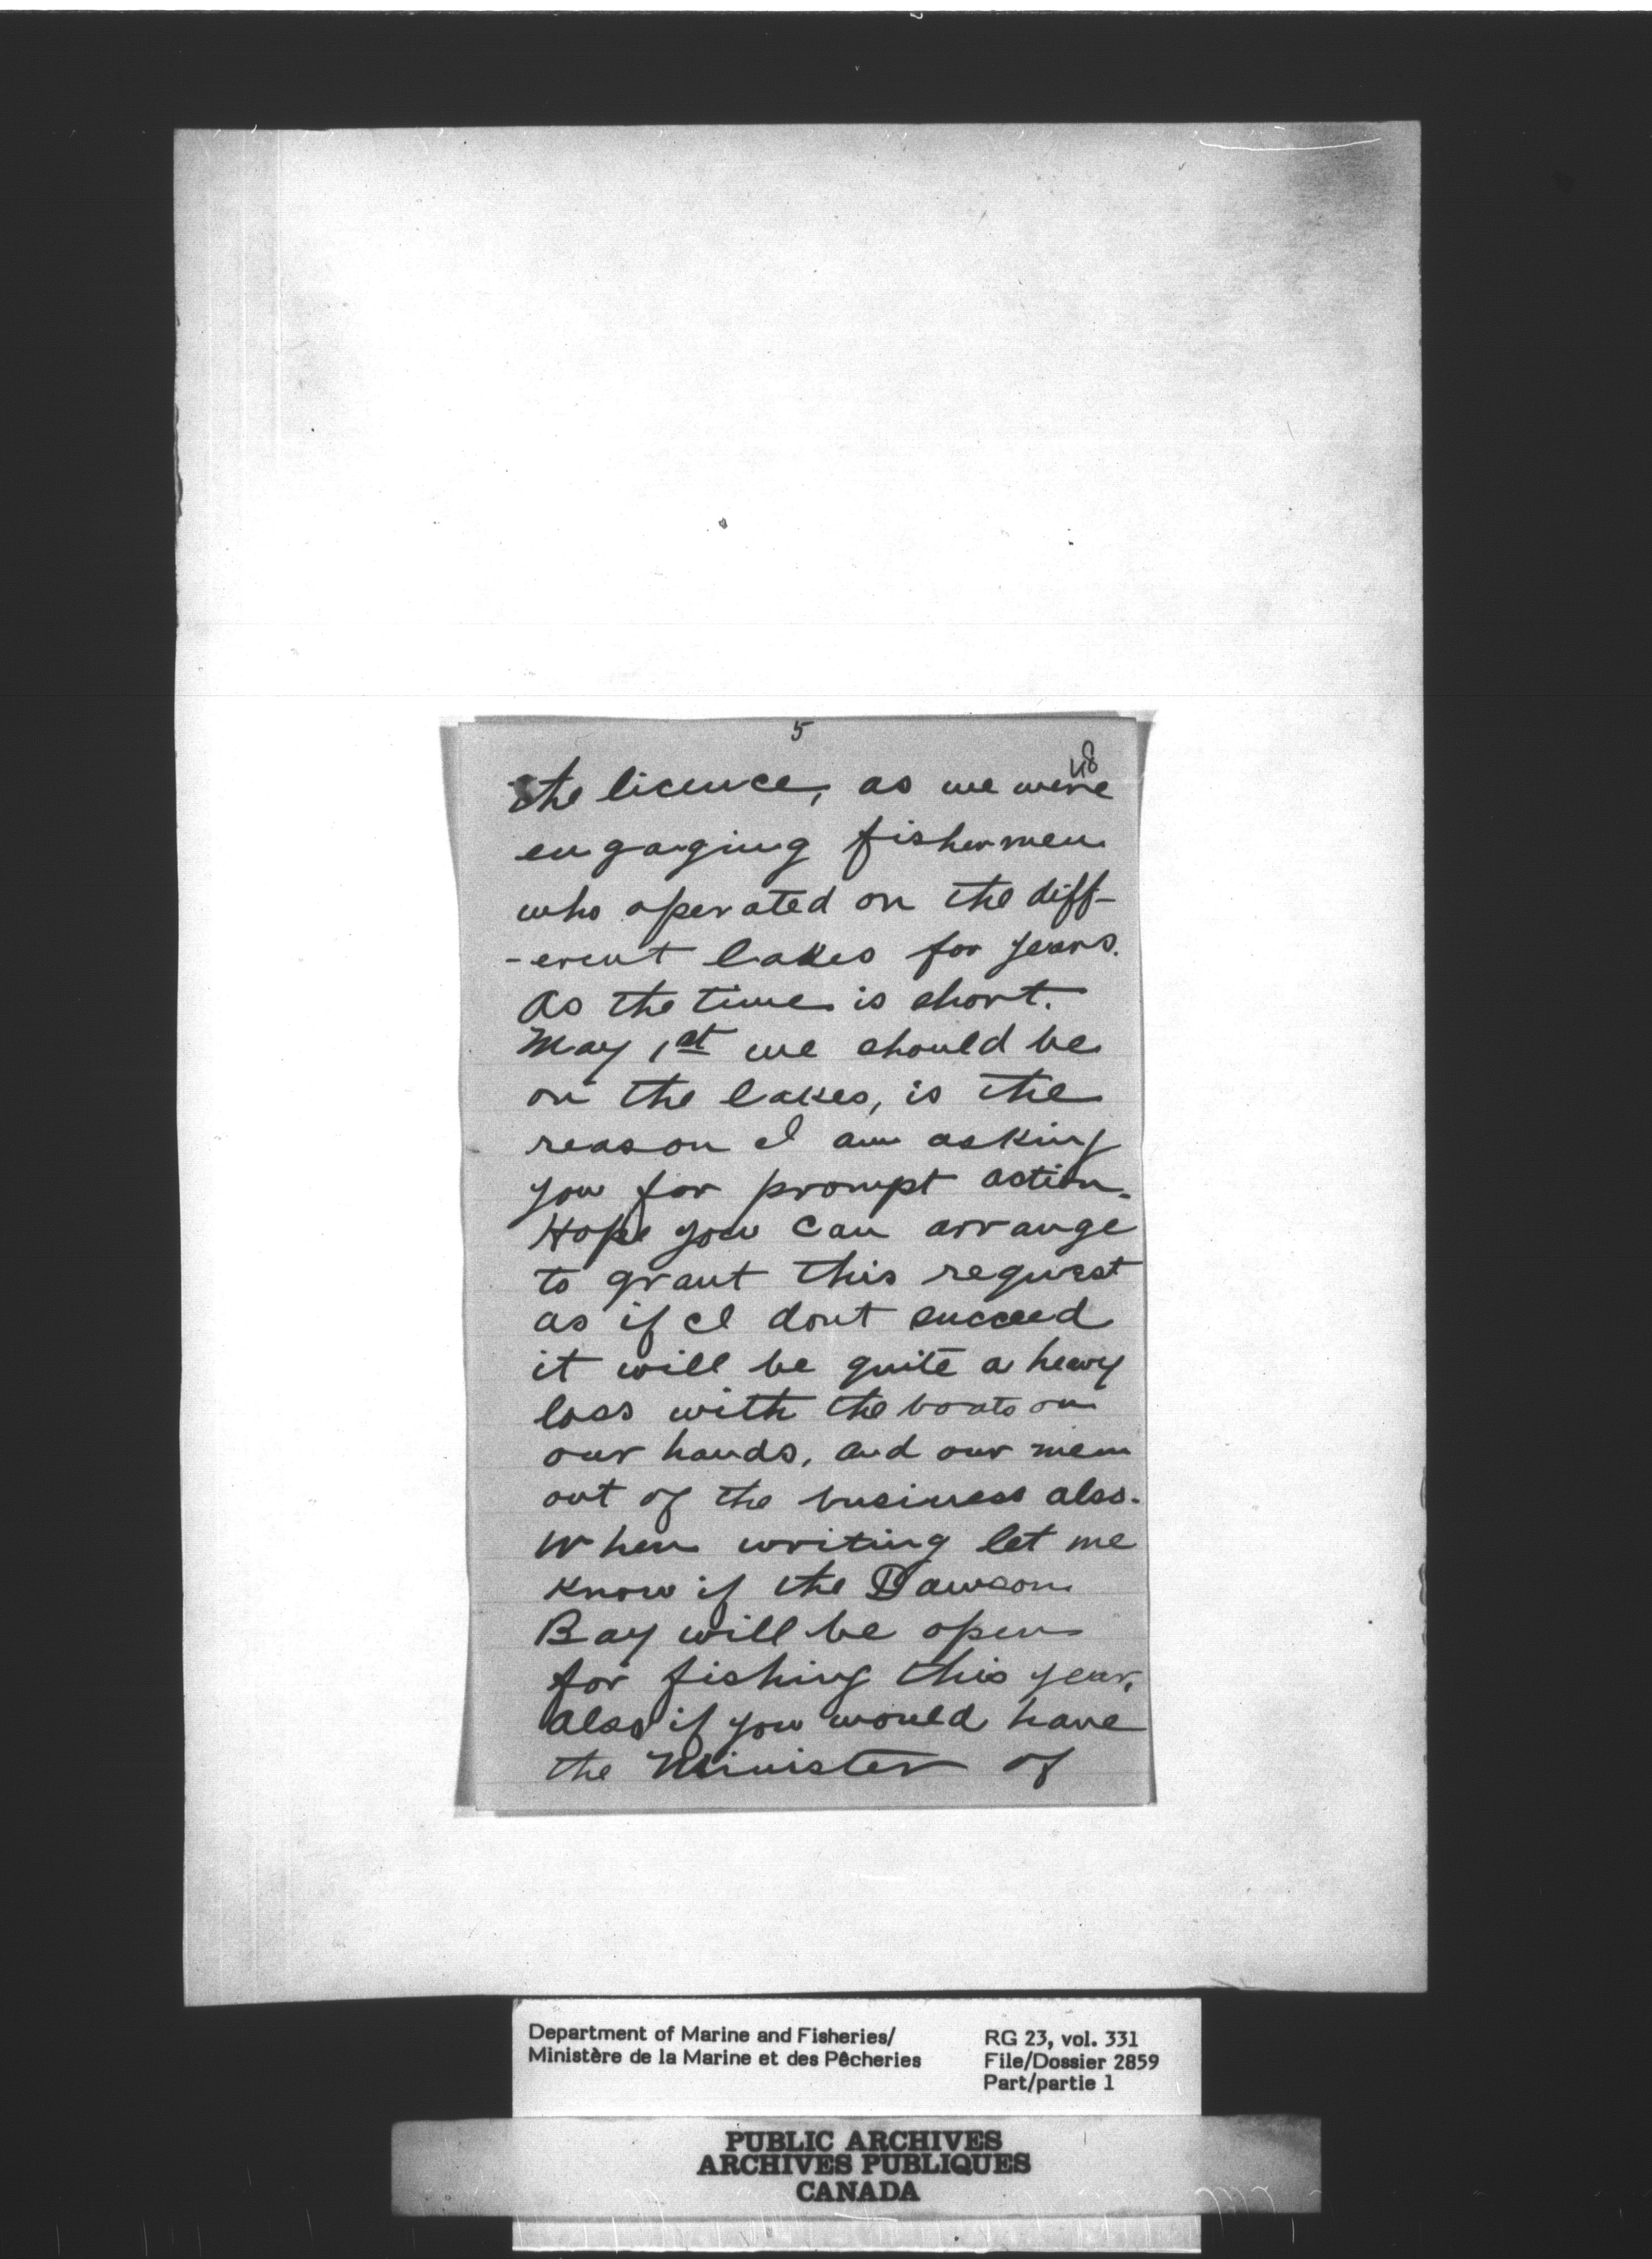 5
48
the licence, as we were
engaging fishermen
who operated on the diff-
-erent lakes for years.
As the time is short.
May 1st we should be
on the lakes, is the
reason I am asking
you for prompt action.
Hope you can arrange
to grant this request
as if I dont succeed
it will be quite a heavy
loss with the boats on
our hands, and our men
out of the business also.
When writing let me
know if the Dawson
Bay will be open
for fishing this year,
also if you would have
the Minister of
Department of Marine and Fisheries/
Ministère de la Marine et des Pêcheries
RG 23, vol. 331
File/Dossier 2859
Part/partie 1
PUBLIC ARCHIVES
ARCHIVES PUBLIQUES
CANADA